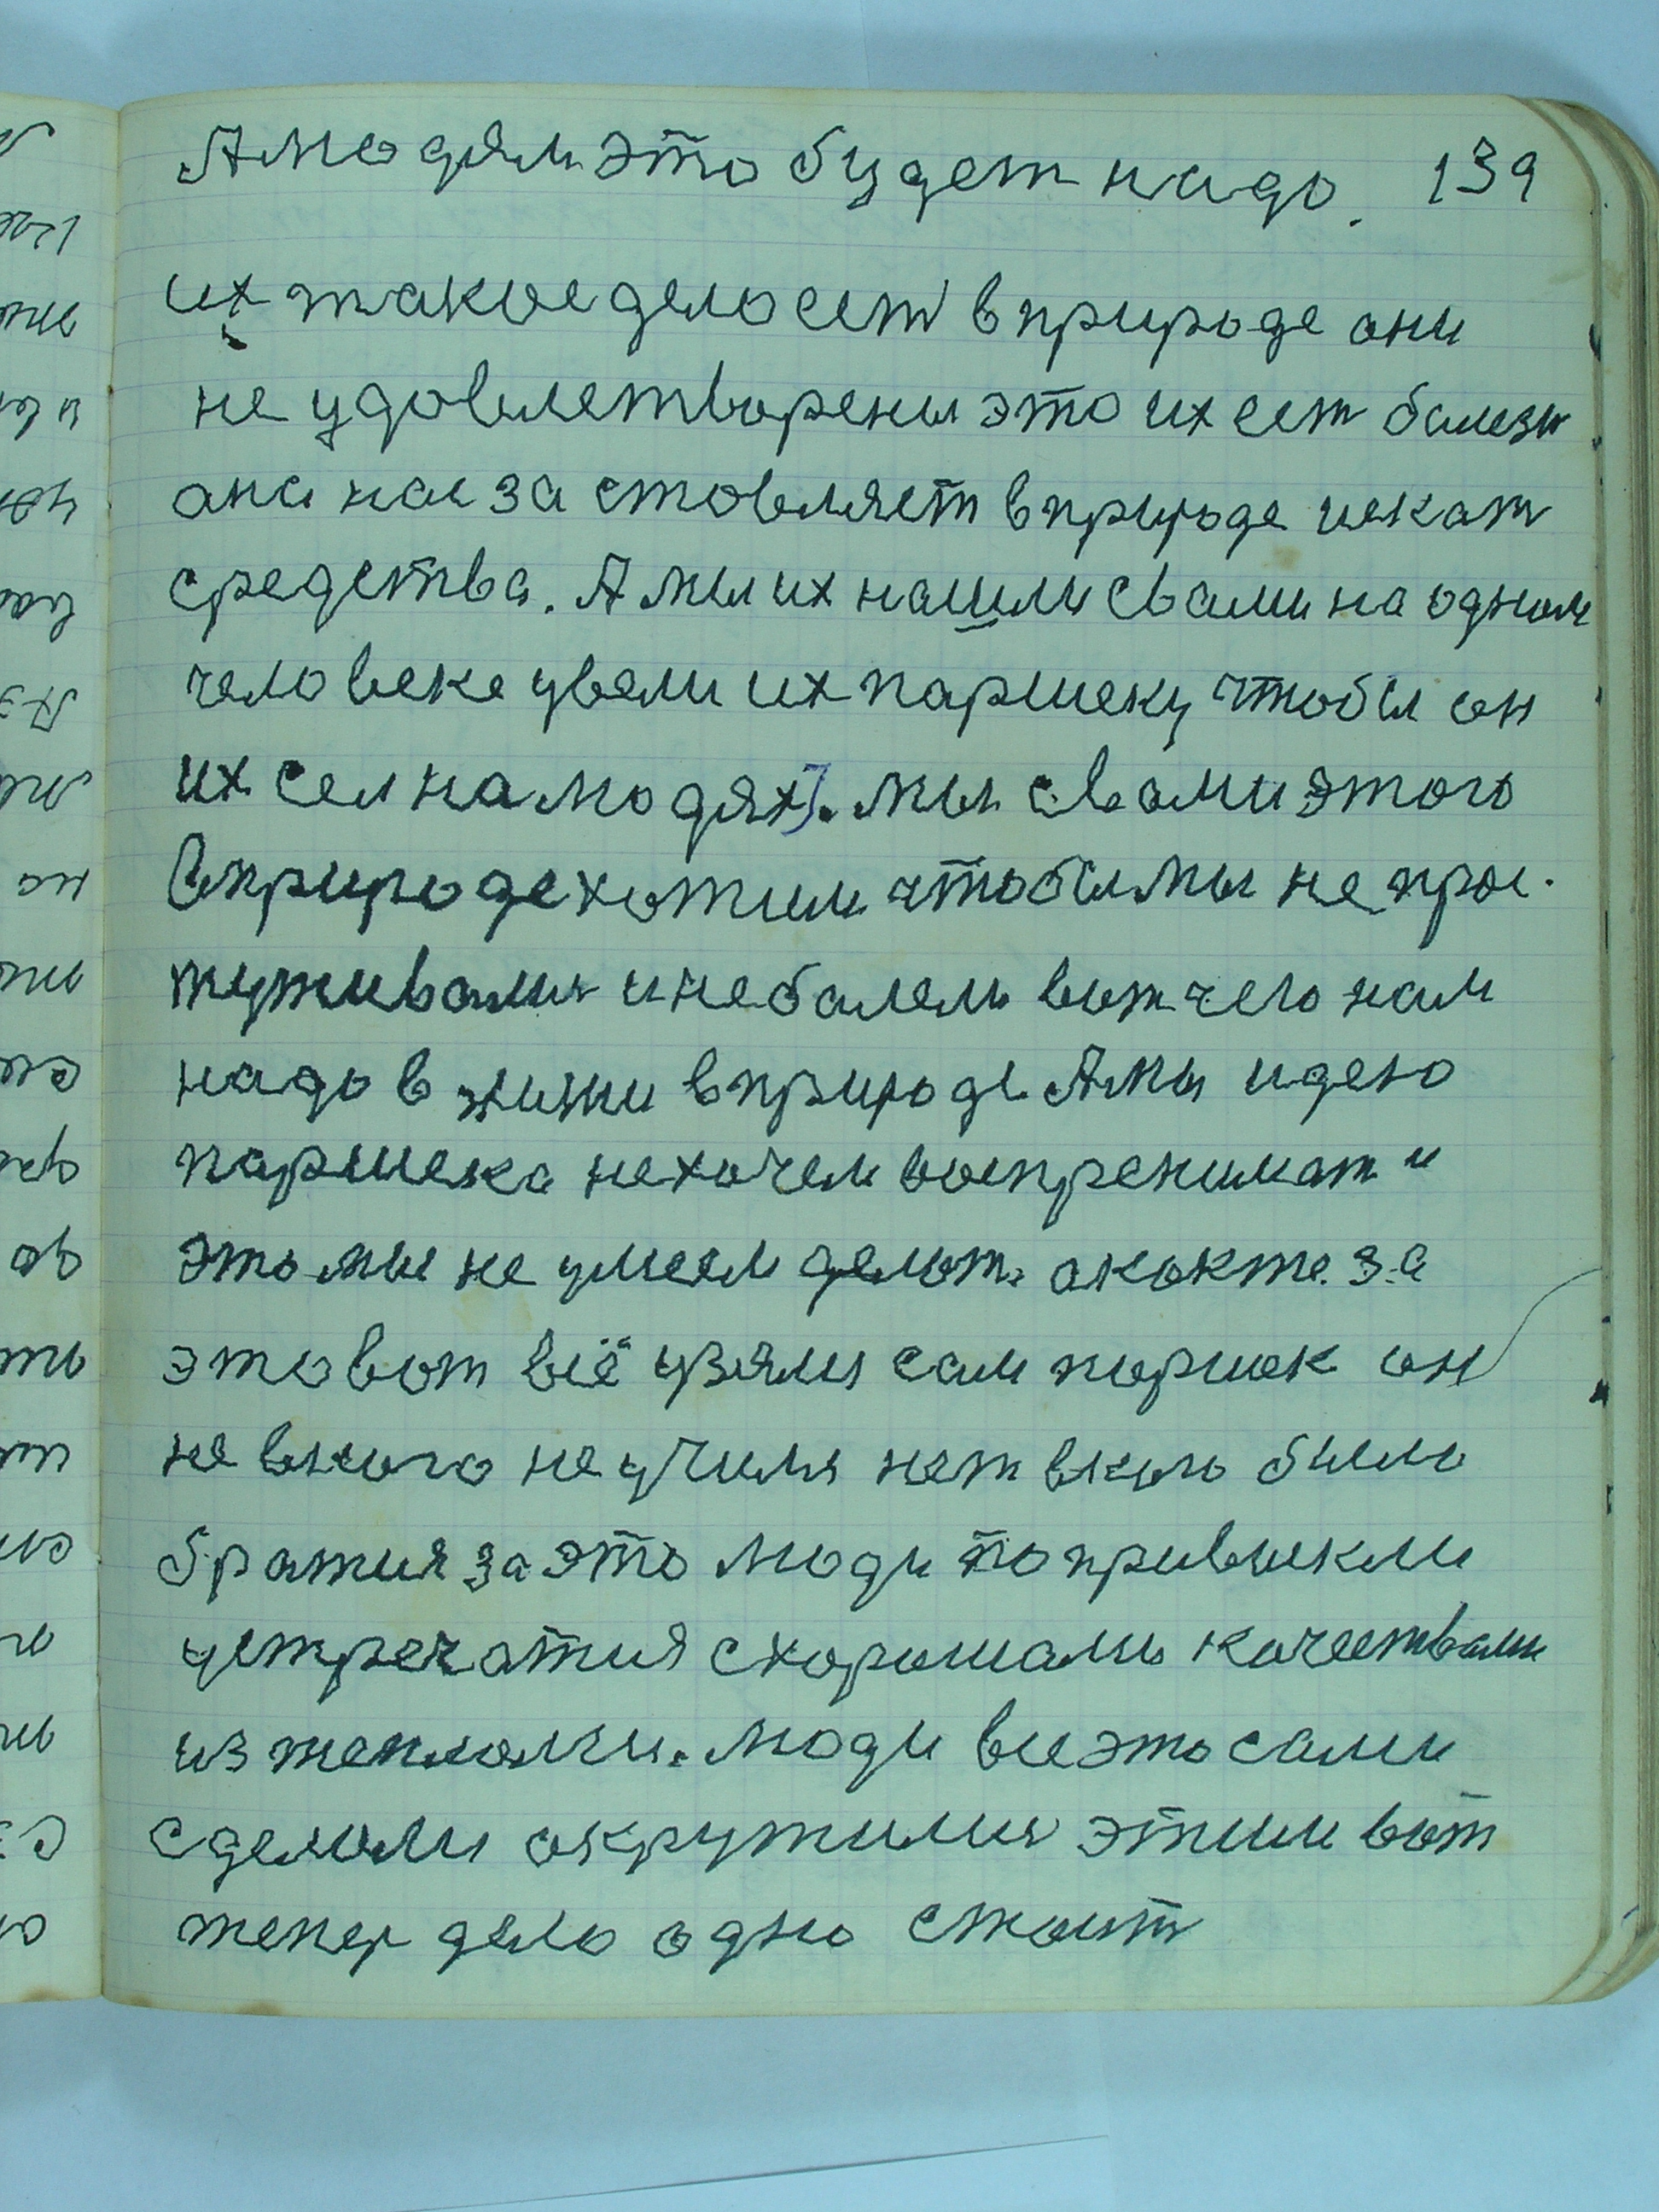 А людям это будет надо. 139
их такое дело ест в природе они
не удовлетворены это их ест болезн
она нас заставляет в природе искат
средства. А мы их нашли с вами на одном
человеке увели их паршеку чтобы он
их сел на людях). мы с вами этого
в природе хотим чтобы мы не прос
туживалис и не балели вот чего нам
надо в жизни в природе А мы идею
паршека не хочем воспренимат и
это мы не умеем делат. а как те за
это вот всё узялис сам паршек он
не в кого не училя нет в кого было
братия за это люди то привыкли
устречатия с хорошами качествами
из теплоами. люди все это сами
сделали окружилис этим вот
тепер дело одно стоит